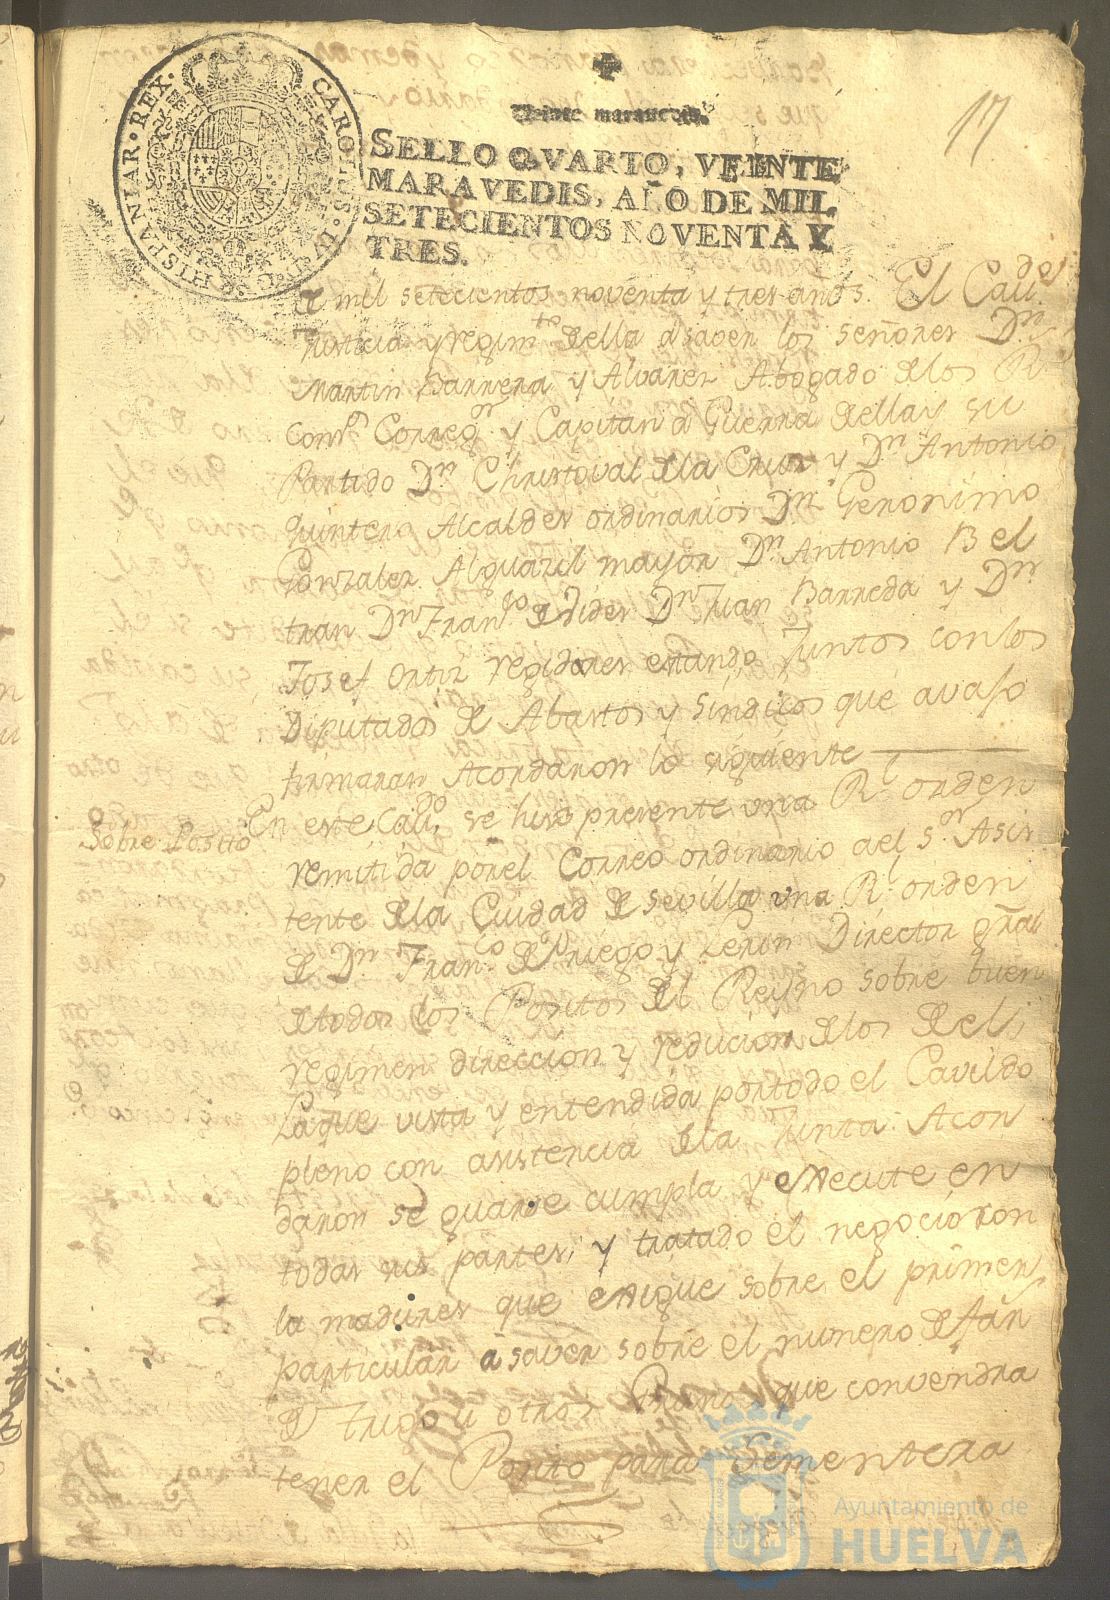 HISPANIAR·REX· CAROLUS·IV·D·G·
Veinte maravedis.
17
SELLO QVARTO, VEINTE
MARAVEDIS, AÑO DE MIL
SETECIENTOS NOVENTA Y
TRES.
de mil setecientos noventa y tres años. El Cav.do
Justicia y regim.to de ella a saver los señores Dn.
Martin Barrera y Alvarez Abogado de los R.s
Com.s Correg.or y Capitan a Guerra de ella y su
Partido Dn. Christoval de la Cruz y Dn. Antonio
Quintero Alcaldes ordinarios Dn. Geronimo
Gonzalez Alguazil mayor Dn. Antonio Bel
tran Dn. Fran.co de Dn. Juan Barreda y Dn.
Josef Ortiz regidores estando Juntos con los
Diputados de Abastos y Sindicos que avajo
firmaran Acordaron lo siguiente
Sobre Posito
En este Cav.do se hizo presente una R.l orden
remitida por el Correo ordinario del S.or Asis
tente de la Ciudad de Sevilla una R.l orden
de Dn. Fran.co de Priego y Lerin Director gral
de todos los Positos del Reyno sobre buen
regimen direccion y reducion de los de el;
La que vista y entendida por todo el Cavildo
pleno con asistencia de la Junta Acor
daron se guarde cumpla y execute en
todas sus partes; y tratado el negocio con
la madures que exigue sobre el primer
particular a saver sobre el numero de fan.s
de Trigo u otros Granos que convendra
tener el Posito para Sementera
Ayuntamiento de
HUELVA